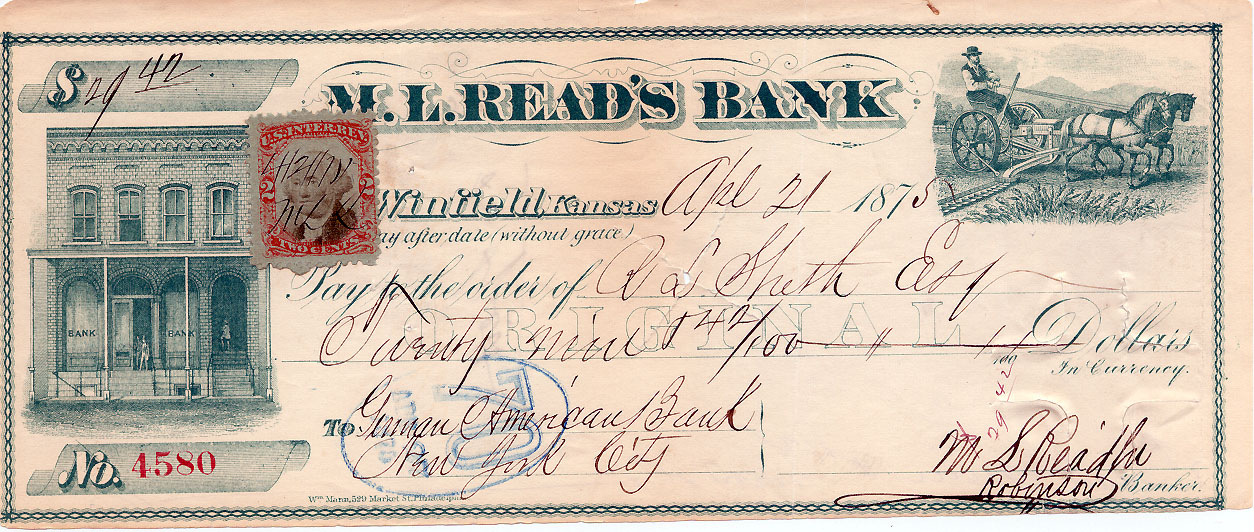 $ 29 42
M. L. READ'S BANK
U.S. INTER. REV.
2 2
TWO CENTS
Winfield, Kansas Apl 21 1875
ay after date (without grace.)
Pay to the order of Esq
ORIGINAL
Twenty nine & 42/100 Dollars
In Currency.
BANK BANK
To German American Bank
New York City
29 42/100
No. 4580
M L Read
Robinson Banker.
Wm Mann, 529 Market St. Philadelphia